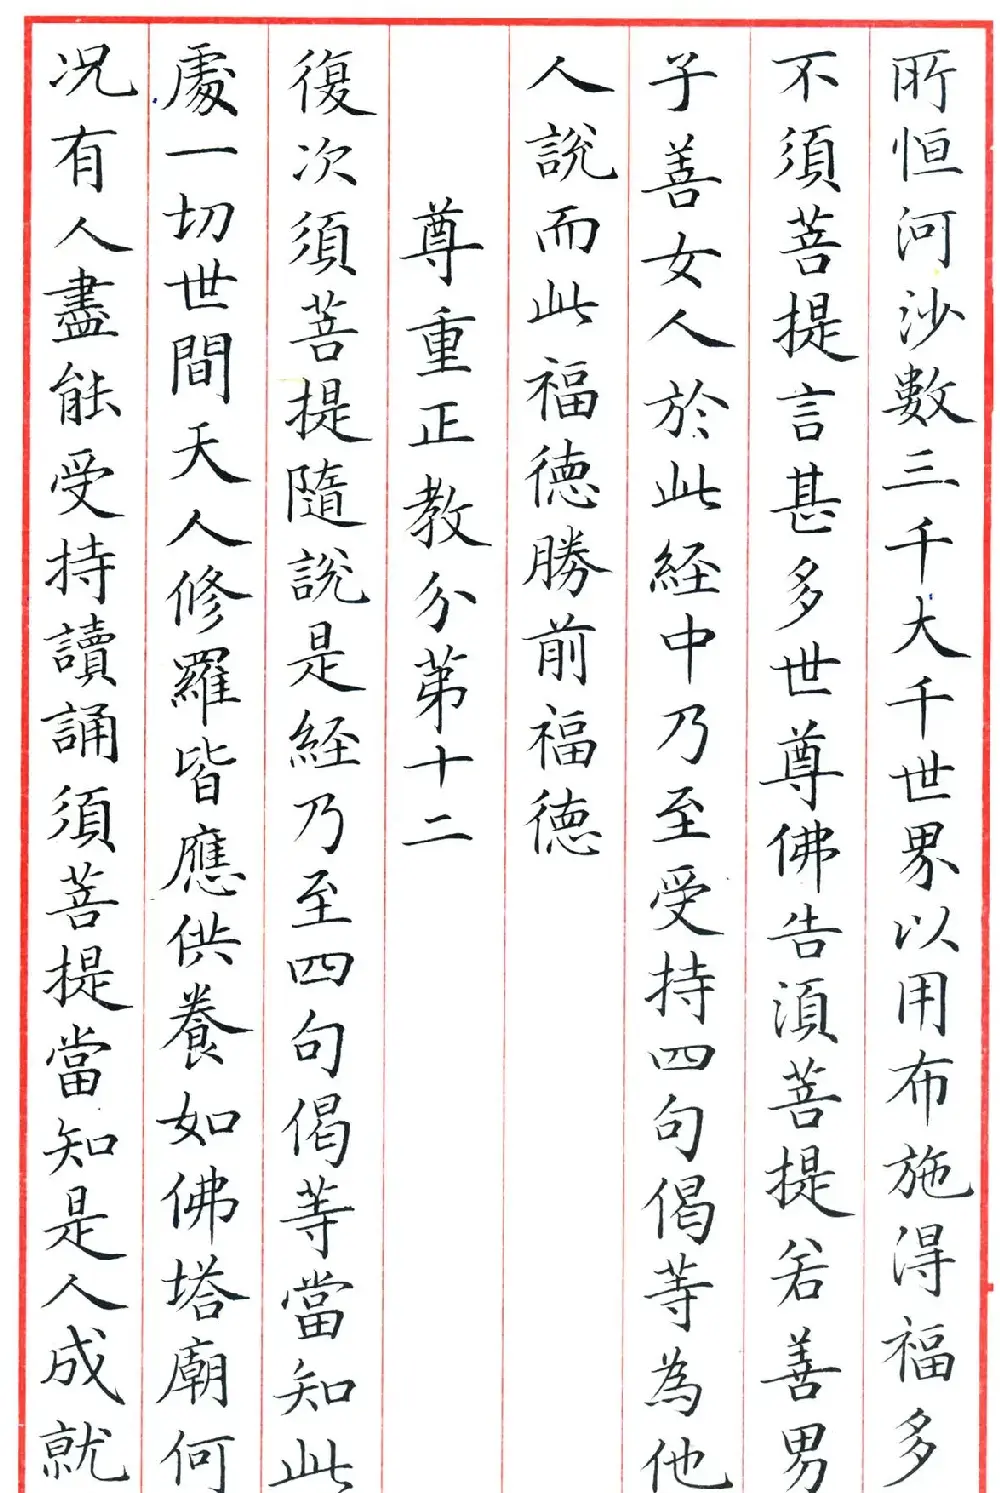 所恒河沙數三千大千世界以用布施得福多
不須菩提言甚多世尊佛告須菩提若善男
子善女人於此經中乃至受持四句偈等為他
人說而此福德勝前福德
尊重正教分第十二
復次須菩提隨說是經乃至四句偈等當知此
處一切世間天人修羅皆應供養如佛塔廟何
況有人盡能受持讀誦須菩提當知是人成就